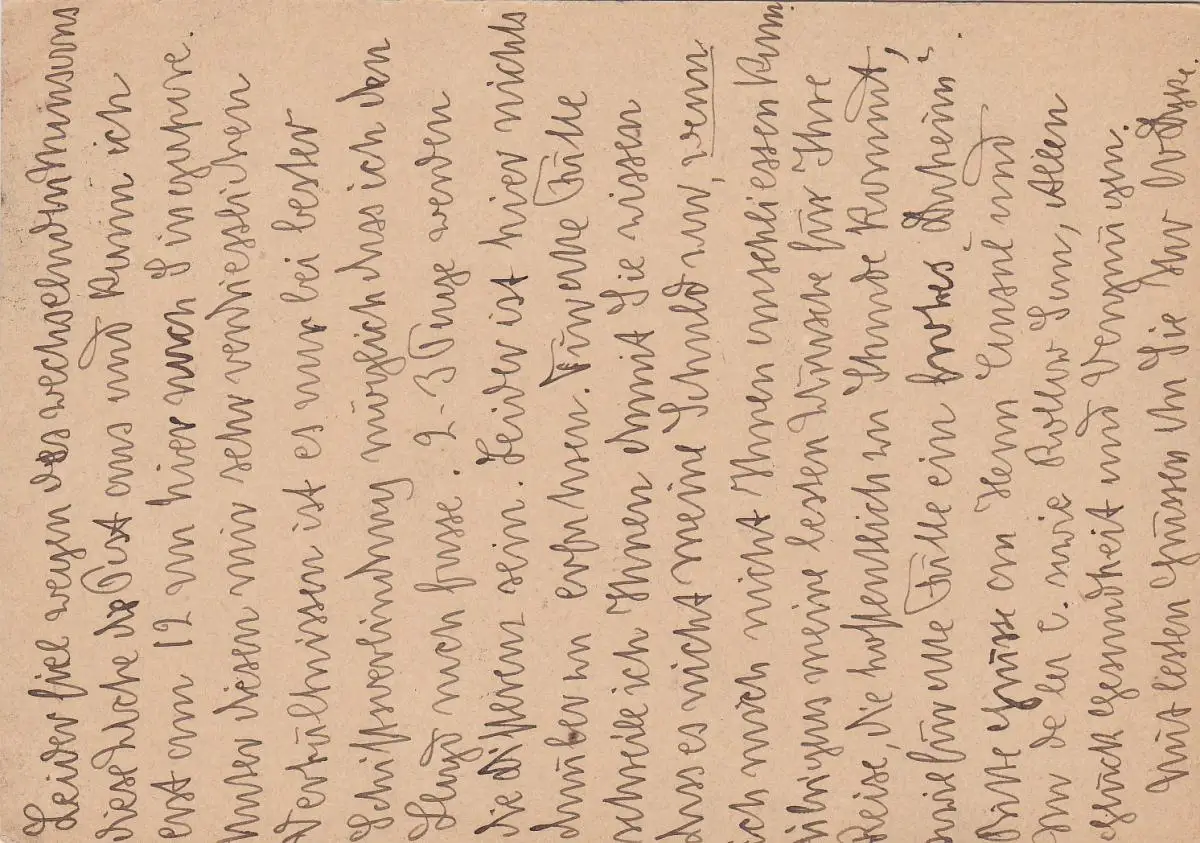 Leider fiel wegen des wechselnd Monsoons
diese Woche die Post aus und kann ich
erst am 12 von hier nach Singapore.
Unter diesen mir sehr verdriesslichen
Verhältnissen ist es nur bei bester
Schiffsverbindung möglich dass ich den
noch fasse. 2-3 Tage werden
die Differenz sein. Leider ist hier nichts
darüber zu erfahren. Für alle Fälle
schreibe ich Ihnen damit Sie wissen
dass es nicht meine Schuld war, wenn
ich mich nicht Ihnen anschliessen kann.
Übrigens meine besten Wünsche für Ihre
Reise, die hoffentlich zu Stande kommt,
sowie für alle Fälle ein frohes Daheim!
Bitte Grüsse an Herrn und
de la C. wie Rollow Sen, Allen
Glück Gesundheit und Vergnügen.
Mit besten Grüssen bin Ihr